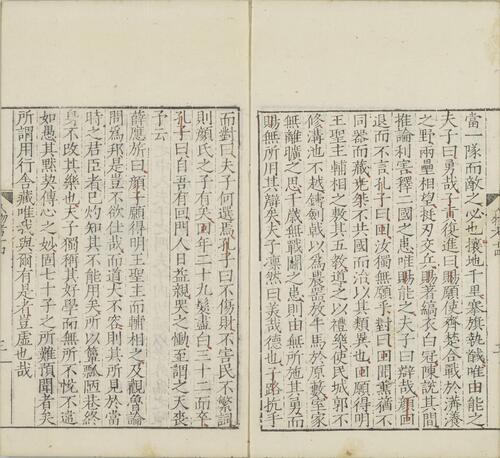 當一隊而敵之必也攘地千里搴旗執馘唯由能之
夫子曰勇哉子貢復進曰賜願使齊楚合戰於漭瀁
之野兩壘相望挺刃交兵賜著縞衣白冠陳說其間
推論利害釋二國之患唯賜能之夫子曰辯哉顏回
退而不言孔子曰回汝獨無願乎對曰回聞薰蕕不
同器而藏堯桀不共國而治以其類異也回願得明
王聖主輔相之敷其五教道之以禮樂使民城郭不
修溝池不越鑄劍戟以爲農器放牛馬於原藪室家
無離曠之思千歲無戰鬪之患則由無所施其勇而
賜無所用其辯矣夫子凛然曰美哉德也子路抗手
而對曰夫子何選焉孔子曰不傷財不害民不繁詞
則顏氏之子有矣回年二十九髮盡白三十二而卒
孔子曰自吾有回門人日益親哭之慟至謂之天喪
予云
薛應旂曰顏子願得明王聖主而輔相之及觀魯論
問爲邦是豈不欲仕哉而道大不容則其所見於當
時之君臣者已灼知其不能用矣所以簞瓢陋巷終
身不改其樂也夫子獨稱其好學而無所不悅不違
如愚其默契傳心之妙固七十子之所難預聞者矣
所謂用行舍藏唯我與爾有是者豈虛也哉